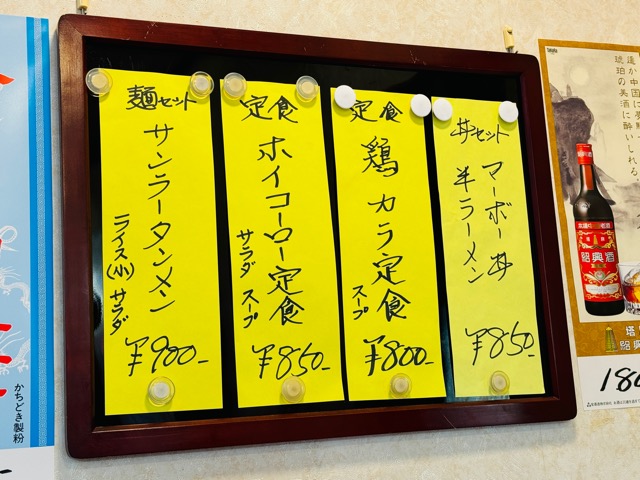 麺セット
サンラータンメン
ライス(小) サラダ
¥900-
定食
ホイコーロー定食
サラダ スープ
¥850-
定食
鶏カラ定食
スープ
¥800-
丼セット
マーボー丼
半ラーメン
¥850-
琥珀の美酒に酔いしれる
紹興酒
かちどき製粉
180